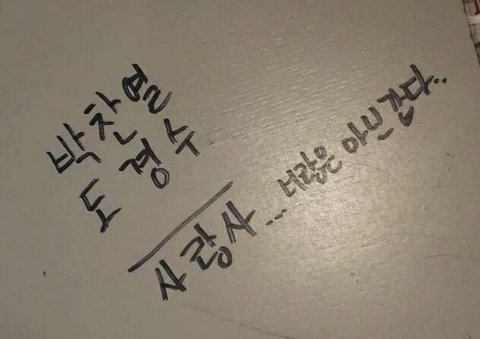 박찬열
도경수
사랑사... 너랑은 아닌갑다..